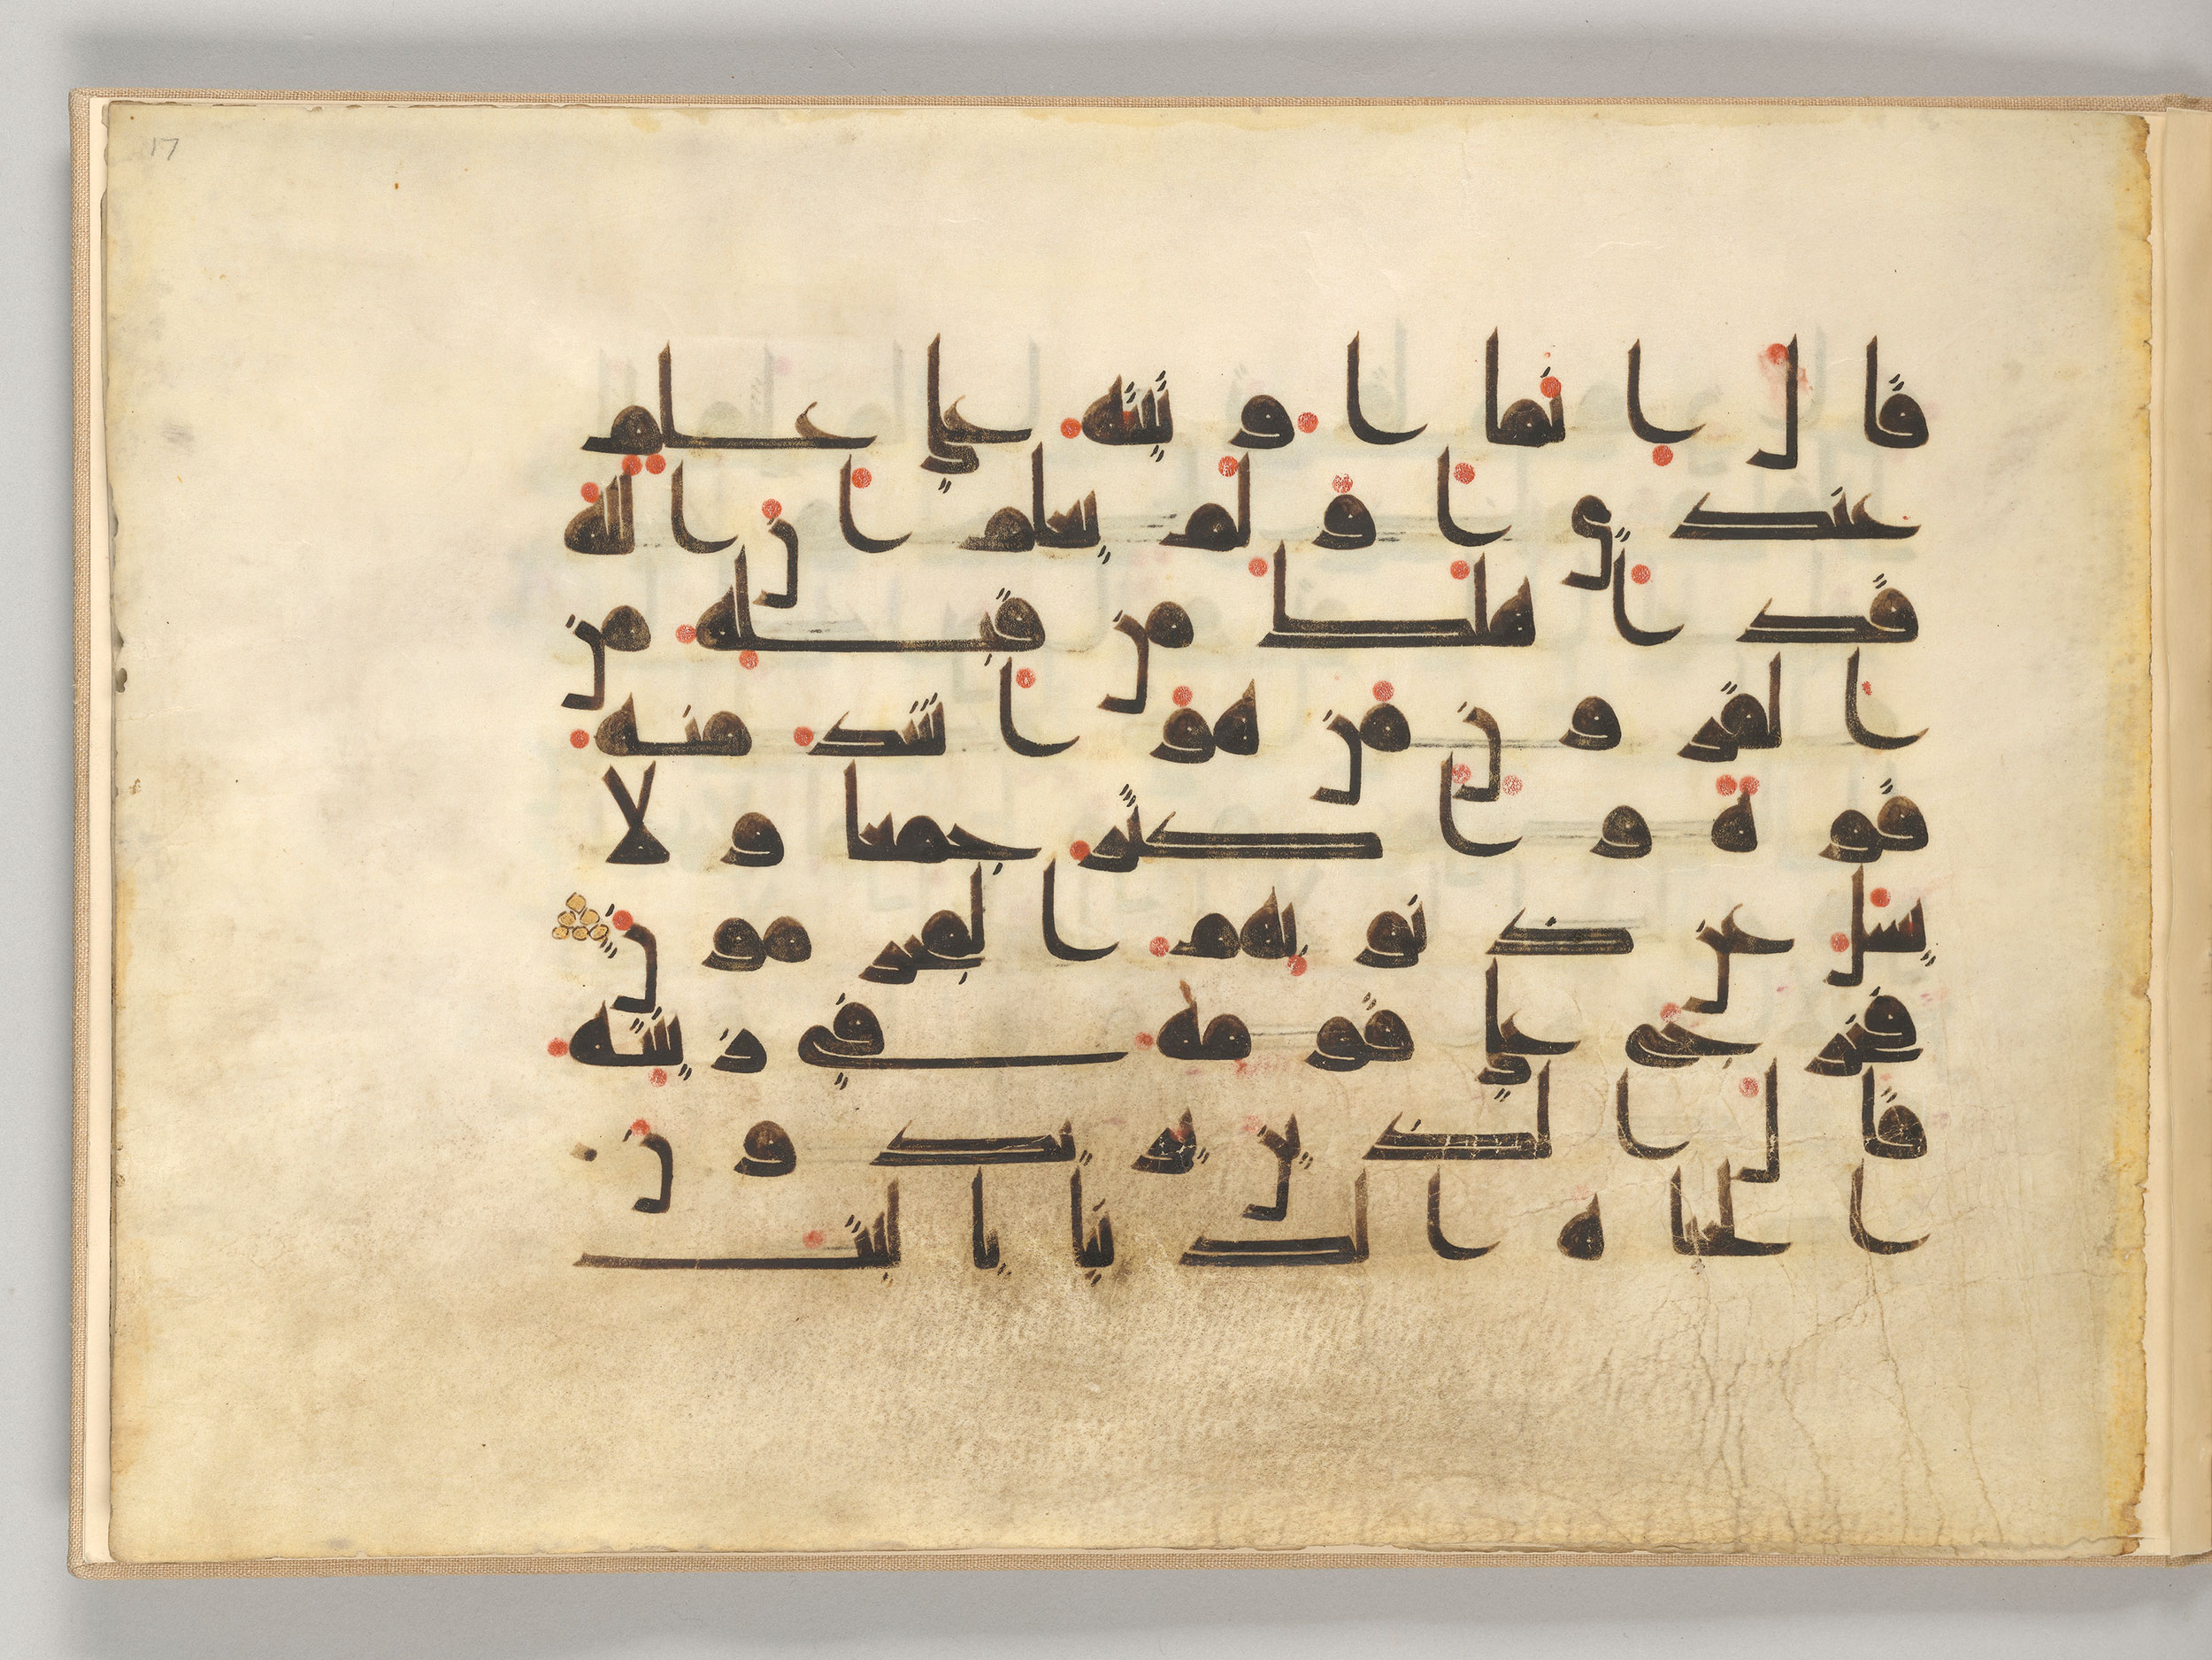 17
قال إنما أوتيته على علم
عندي أو لم يعلم أن الله
قد أهلك من قبله من
القرون من هو أشد منه
قوة وأكثر جمعا ولا
يسئل عن ذنوبهم المجرمون
فخرج على قومه في زينته
قال الذين يريدون
الحياة الدنيا يا ليت